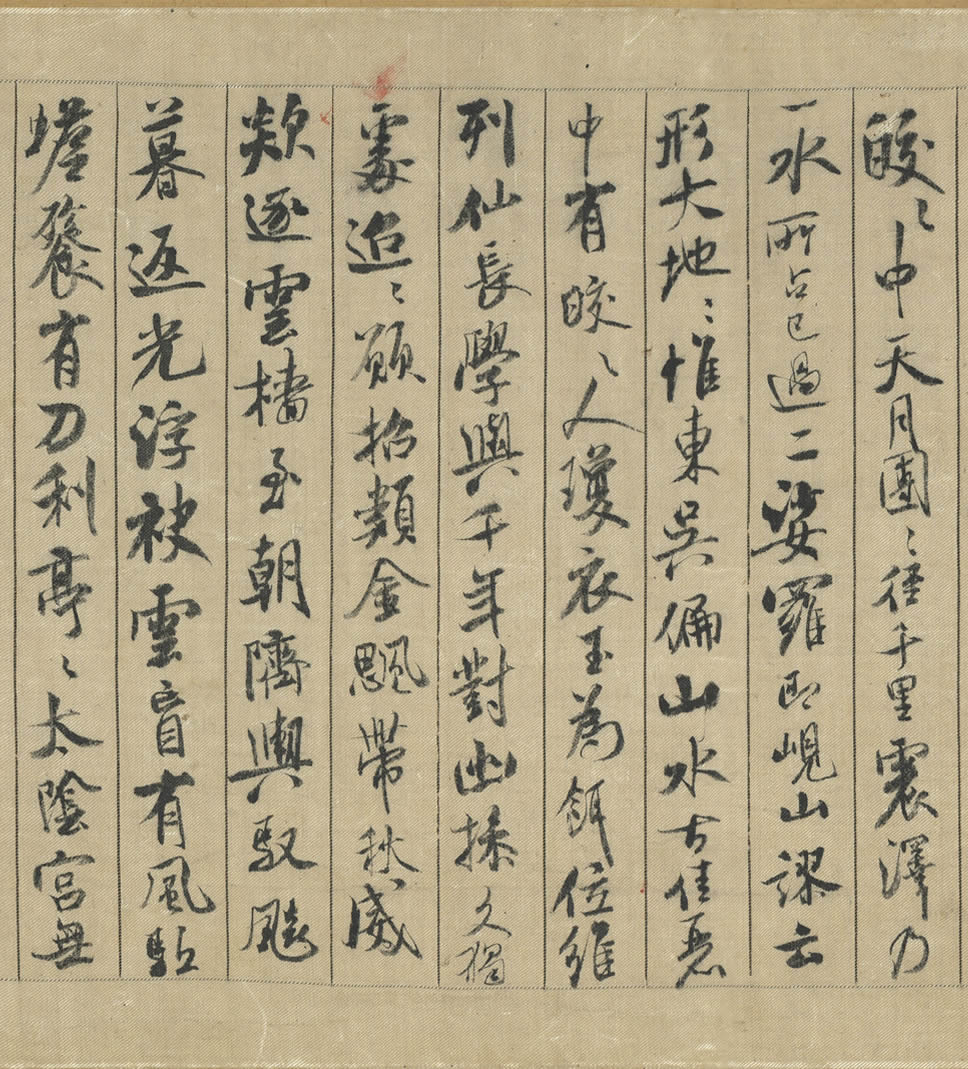 皎〻中天月團〻徑千里震澤乃
一水所占已過二娑羅即峴山謬云
形大地〻惟東吳偏山水古佳麗
中有皎〻人瓊衣玉為餌位維
列仙長學與千年對幽操久獨
處迢〻願招類金飈帶秋威
欻逐雲檣至朝隮輿馭飈
暮返光浮袂雲盲有風駈
蟾餮有刀利亭〻太陰宮無